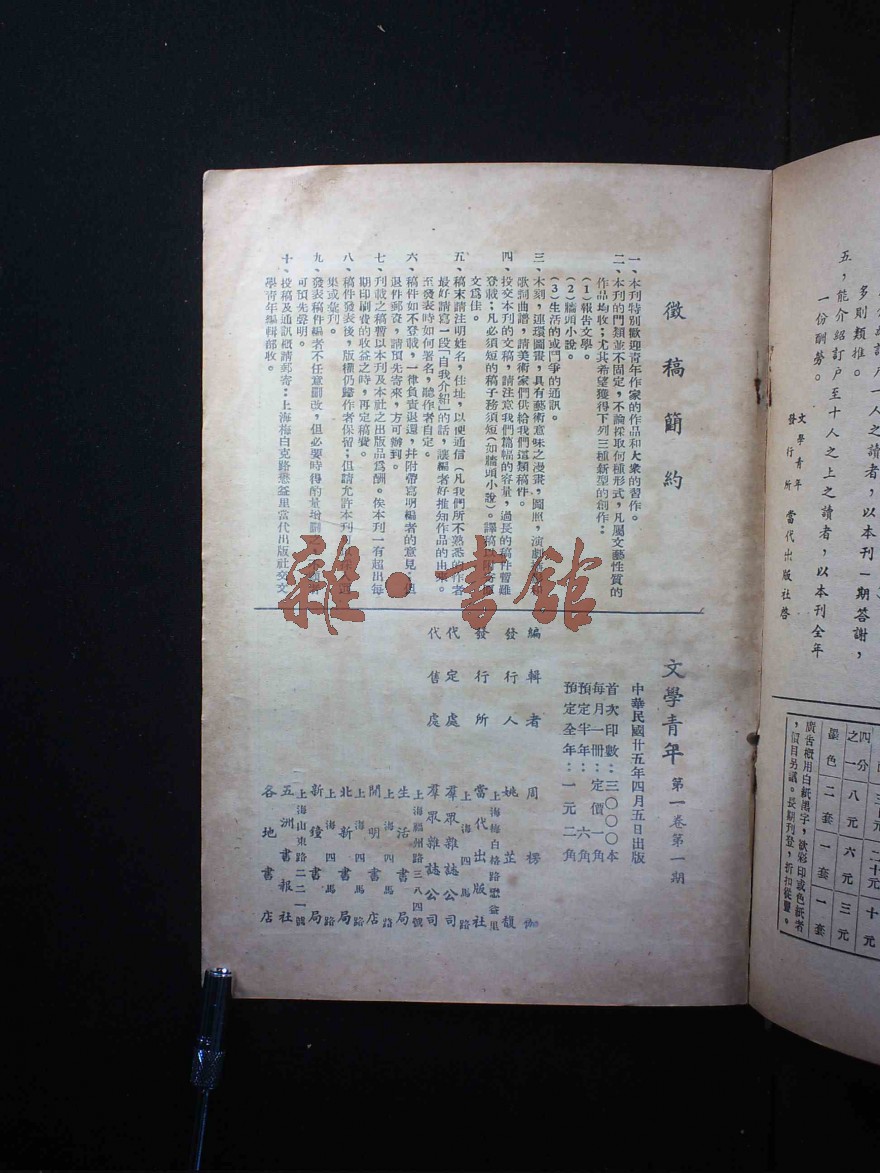 徵稿簡約
一、本刊特別歡迎青年作家的作品和大衆的習作。
二、本刊的門類並不固定，不論採取何種形式，凡屬文藝性質的
作品均收；尤其希望獲得下列三種新型的創作：
(1)報告文學。
(2)牆頭小說。
(3)生活的或鬥爭的通訊。
三、木刻，連環圖畫，具有藝術意味之漫畫，圖照，演劇
歌詞曲譜，請美術家們供給我們這類稿件。
四、投交本刊的文稿，請注意我們篇幅的容量，過長的稿件暫難
登載；凡必須短的稿子務須短(如牆頭小說)。譯稿
文爲佳。
五、稿末請注明姓名，住址，以便通信(凡我們所不熟悉的作者
最好請寫一段「自我介紹」的話，讓編者好推知作品的由來。
至發表時如何署名，聽作者自定。
六、稿件如不登載，一律負責退還，并附帶寫明編者的意見；但
退件郵資，請預先寄來，方可辦到。
七、刊載之稿暫以本刊及本社之出版品爲酬。俟本刊一有超出每
期印刷費的收益之時，再定稿費。
八、稿件發表後，版權仍歸作者保留；但請允許本刊
集或彙刊。
九、發表稿件編者不任意刪改，但必要時得酌量增刪
可預先聲明。
十、投稿及通訊概請郵寄：上海梅白克路懋益里當代出版社交文
學青年編輯部收。
文學青年 第一卷第一期
中華民國廿五年四月五日出版
首次印數：三〇〇〇本
每月一冊：定價一角
預定半年：六角
預定全年：一元二角
編輯者 周楞伽
發行人 姚芷馥
上海梅白格路懋益里
發行所 當代出版社
上海四馬路
代定處 羣眾雜誌公司
代售處 羣眾雜誌公司
上海福州路三八四號
生活書局
上海四馬路
開明書店
上海四馬路
北新書局
上海四馬路
新鐘書局
上海山東路二二一號
五洲書報社
各地書店
雜·書館
一人之讀者，以本刊一期答謝，
多則類推。
五，能介紹訂戶至十人之上之讀者，以本刊全年
一份酬勞。
文學青年
發行所 當代出版社啓
四分之一 八元 六元 三元
墨色 二套 一套 一套
廣告概用白紙黑字，欲彩印或色紙者
，價目另議。長期刊登，折扣從豐。